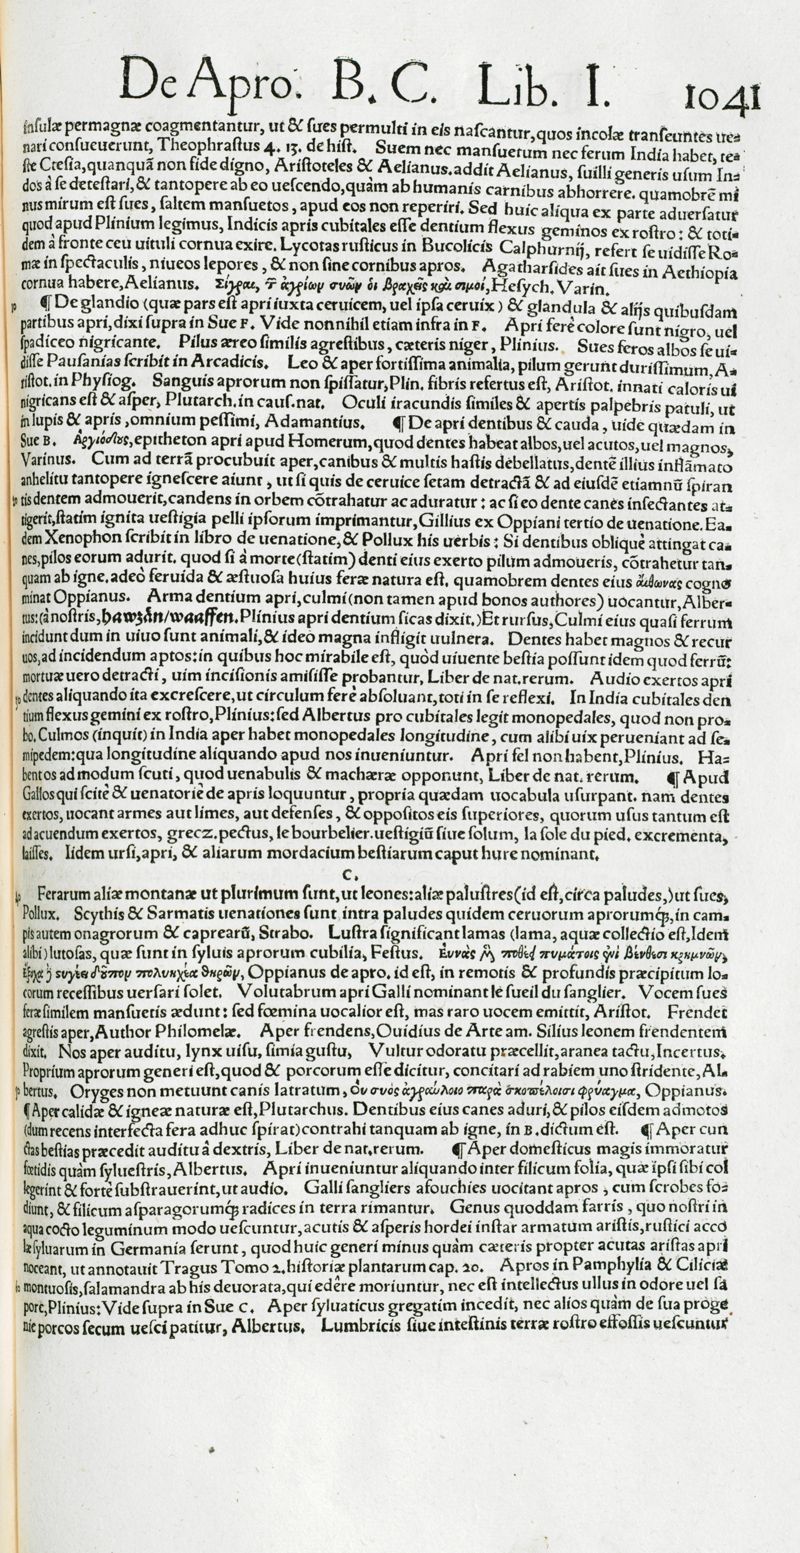 De Apro. B. C. Lib. I. 1041
insulæ permagnæ coagmentantur, ut & sues permulti in eis nascantur, quos incolæ transeuntes ue-
nari consueuerunt, Theophrastus 4. 13. de hist. Suem nec mansuetum nec ferum India habet, te-
ste Ctesia, quanquã non fide digno, Aristoteles & Aelianus. addit Aelianus, suilli generis usum In-
dos à se detestari, & tantopere ab eo uescendo, quàm ab humanis carnibus abhorrere. quamobrẽ mi
nus mirum est sues, saltem mansuetos, apud eos non reperiri. Sed huic aliqua ex parte aduersatur
quod apud Plinium legimus, Indicis apris cubitales esse dentium flexus geminos ex rostro: & toti-
dem à fronte ceu uituli cornua exire. Lycotas rusticus in Bucolicis Calphurnij, refert se uidisse Ro-
mæ in spectaculis, niueos lepores, & non sine cornibus apros. Agatharsides ait sues in Aethiopia
cornua habere, Aelianus. Σίγραι, τ ἀγρίων συῶν οἱ βραχεῖς καὶ σιμοί, Hesych. Varin.
¶ De glandio (quæ pars est apri iuxta ceruicem, uel ipsa ceruix) & glandula & alijs quibusdam
partibus apri, dixi supra in Sue F. Vide nonnihil etiam infra in F. Apri ferè colore sunt nigro, uel
spadiceo nigricante. Pilus æreo similis agrestibus, cæteris niger, Plinius. Sues feros albos se ui-
disse Pausanias scribit in Arcadicis. Leo & aper fortissima animalia, pilum gerunt durissimum, A-
ristot. in Physiog. Sanguis aprorum non spissatur, Plin. fibris refertus est, Aristot. innati caloris ui
nigricans est & asper, Plutarch. in caus. nat. Oculi iracundis similes & apertis palpebris patuli, ut
in lupis & apris, omnium pessimi, Adamantius. ¶ De apri dentibus & cauda, uide quædam in
Sue B. Ἀργιόδους, epitheton apri apud Homerum, quod dentes habeat albos, uel acutos, uel magnos,
Varinus. Cum ad terrã procubuit aper, canibus & multis hastis debellatus, dentẽ illius inflãmato
anhelitu tantopere ignescere aiunt, ut si quis de ceruice setam detractã & ad eiusdẽ etiamnũ spiran
tis dentem admouerit, candens in orbem cõtrahatur ac aduratur: ac si eo dente canes insectantes at-
tigerit, statim ignita uestigia pelli ipsorum imprimantur, Gillius ex Oppiani tertio de uenatione. Ea-
dem Xenophon scribit in libro de uenatione, & Pollux his uerbis: Si dentibus obliquè attingat ca-
nes, pilos eorum adurit. quod si à morte (statim) denti eius exerto pilum admoueris, cõtrahetur tan-
quam ab igne. adeò feruida & æstuosa huius feræ natura est, quamobrem dentes eius αἴθωνας cogno
minat Oppianus. Arma dentium apri, culmi (non tamen apud bonos authores) uocantur, Alber-
tus: (à nostris, hawzän/waaffen. Plinius apri dentium sicas dixit.) Et rursus, Culmi eius quasi ferrum
incidunt dum in uiuo sunt animali, & ideo magna infligit uulnera. Dentes habet magnos & recur
uos, ad incidendum aptos: in quibus hoc mirabile est, quòd uiuente bestia possunt idem quod ferrũ:
mortuæ uero detracti, uim incisionis amisisse probantur, Liber de nat. rerum. Audio exertos apri
dentes aliquando ita excrescere, ut circulum ferè absoluant, toti in se reflexi. In India cubitales den
tium flexus gemini ex rostro, Plinius: sed Albertus pro cubitales legit monopedales, quod non pro-
bo. Culmos (inquit) in India aper habet monopedales longitudine, cum alibi uix perueniant ad se-
mipedem: qua longitudine aliquando apud nos inueniuntur. Apri fel non habent, Plinius. Ha-
bent os ad modum scuti, quod uenabulis & machæræ opponunt, Liber de nat. rerum. ¶ Apud
Gallos qui scitè & uenatoriè de apris loquuntur, propria quædam uocabula usurpant. nam dentes
exertos, uocant armes aut limes, aut defenses, & oppositos eis superiores, quorum usus tantum est
ad acuendum exertos, grecz. pectus, le bourbelier. uestigiũ siue solum, la sole du pied. excrementa,
laisses. Iidem ursi, apri, & aliarum mordacium bestiarum caput hure nominant.
C.
Ferarum aliæ montanæ ut plurimum sunt, ut leones: aliæ palustres (id est, circa paludes,) ut sues,
Pollux. Scythis & Sarmatis uenationes sunt intra paludes quidem ceruorum aprorumq́;, in cam-
pis autem onagrorum & caprearũ, Strabo. Lustra significant lamas (lama, aquæ collectio est, Idem
alibi) lutosas, quæ sunt in syluis aprorum cubilia, Festus. Εὐνὰς πυμάτοις ἐνὶ βένθεσι κρημνῶν,
θηρῶν, Oppianus de apro. id est, in remotis & profundis præcipitum lo-
corum recessibus uersari solet. Volutabrum apri Galli nominant le sueil du sanglier. Vocem sues
feræ similem mansuetis ædunt: sed fœmina uocalior est, mas raro uocem emittit, Aristot. Frendet
agrestis aper, Author Philomelæ. Aper frendens, Ouidius de Arte am. Silius leonem frendentem
dixit. Nos aper auditu, lynx uisu, simia gustu, Vultur odoratu præcellit, aranea tactu, Incertus.
Proprium aprorum generi est, quod & porcorum esse dicitur, concitari ad rabiem uno stridente, Al-
bertus. Oryges non metuunt canis latratum, Οὐ συὸς ἀγραύλοιο παρὰ σκοπέλοισι φρύαγμα, Oppianus.
¶ Aper calidæ & igneæ naturæ est, Plutarchus. Dentibus eius canes aduri, & pilos eisdem admotos
(dum recens interfecta fera adhuc spirat) contrahi tanquam ab igne, in B. dictum est. ¶ Aper cun
ctas bestias præcedit auditu à dextris, Liber de nat. rerum. ¶ Aper domesticus magis immoratur
fœtidis quàm syluestris, Albertus. Apri inueniuntur aliquando inter filicum folia, quæ ipsi sibi col
legerint & fortè substrauerint, ut audio. Galli sangliers afouchies uocitant apros, cum scrobes fo-
diunt, & filicum asparagorumq́; radices in terra rimantur. Genus quoddam farris, quo nostri in
aqua cocto leguminum modo uescuntur, acutis & asperis hordei instar armatum aristis, rustici acco
læ syluarum in Germania serunt, quod huic generi minus quàm cæteris propter acutas aristas apri
noceant, ut annotauit Tragus Tomo 2. historiæ plantarum cap. 20. Apros in Pamphylia & Ciliciæ
montuosis, salamandra ab his deuorata, qui edêre moriuntur, nec est intellectus ullus in odore uel sa
pore, Plinius: Vide supra in Sue C. Aper syluaticus gregatim incedit, nec alios quàm de sua proge
nie porcos secum uesci patitur, Albertus. Lumbricis siue intestinis terræ rostro effossis uescuntur